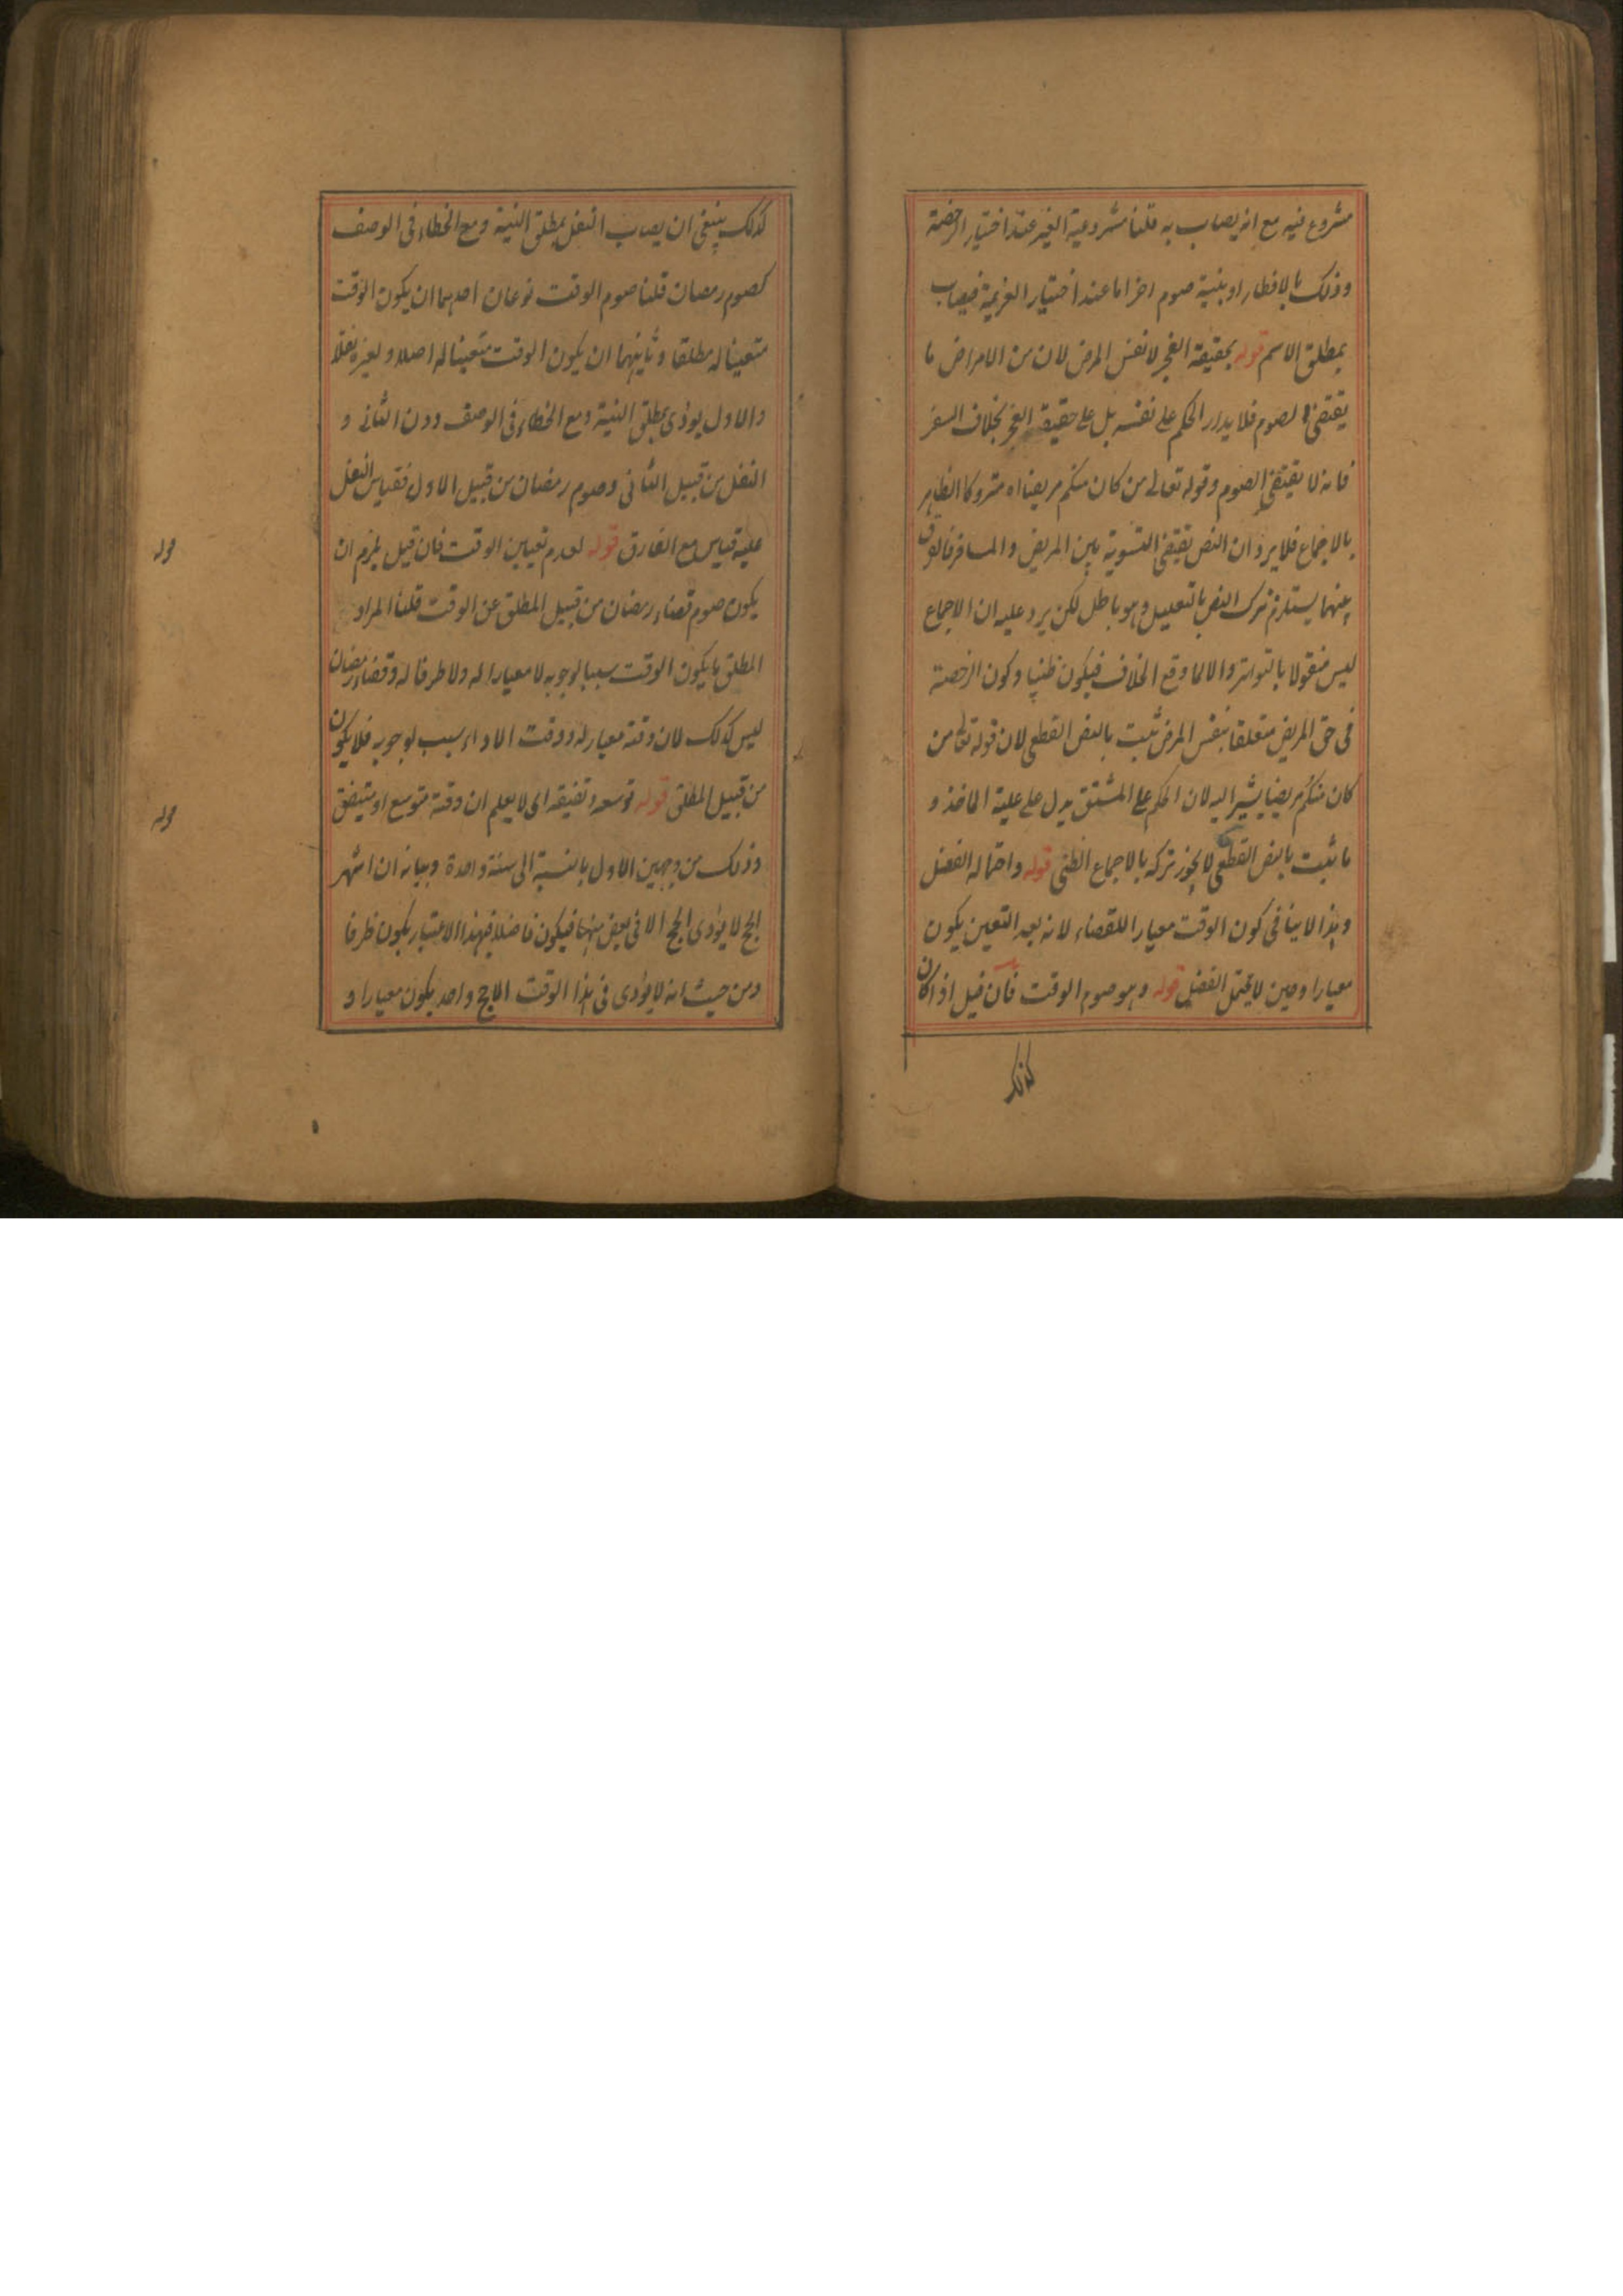 مشروع فيه مع انه يصاب به قلنا مشروعية الغير عند اختيار الرخصة
وذلك بالافطار او بنية صوم اخر اما عند اختيار العزيمة فيصاب
بمطلق الاسم قوله بحقيقة العجز لا نفس المرض لان من الامراض ما
يقتضى الصوم فلا يدار الحكم على نفسه بل على حقيقة العجز بخلاف السفر
فانه لا يقتضى الصوم وقوله تعالى من كان منكم مريضا اه متروكا الظاهر
بالاجماع فلا يرد ان النص يقتضى التسوية بين المريض والمسافر فالفرق
بينهما يستلزم ترك النص بالتعليل وهو باطل لكن يرد عليه ان الاجماع
ليس منقولا بالتواتر والا لما وقع الخلاف فيكون ظنيا وكون الرخصة
فى حق المريض متعلقا بنفس المرض ثبت بالنص القطعى لان قوله تعالى من
كان منكم مريضا يشير اليه لان الحكم على المشتق يدل على علية الماخذ و
ما ثبت بالنص القطعى لا يجوز تركه بالاجماع الظنى قوله واحتماله الفضل
وهذا لا ينافى كون الوقت معيارا للقضاء لانه بعد التعين يكون
معيارا وحين لا يحتمل الفضل قوله وهو صوم الوقت فان قيل اذا كان
كذلك
كذلك ينبغى ان يصاب النفل بمطلق النية ومع الخطاء فى الوصف
كصوم رمضان قلنا صوم الوقت نوعان احدهما ان يكون الوقت
متعينا له مطلقا وثانيهما ان يكون الوقت متعينا له اصلا ولغيره نفلا
والاول يودى بمطلق النية ومع الخطاء فى الوصف دون الثانى و
النفل من قبيل الثانى وصوم رمضان من قبيل الاول فقياس النفل
عليه قياس مع الفارق قوله لعدم تعيين الوقت فان قيل يلزم ان
يكون صوم قضاء رمضان من قبيل المطلق عن الوقت قلنا المراد
المطلق ما يكون الوقت سببا لوجوبه لا معيارا له ولا ظرفا له وقضاء رمضان
ليس كذلك لان وقته معيار له ووقت الاداء سبب لوجوبه فلا يكون
من قبيل المطلق قوله توسعه وتضيقه اى لا يعلم ان وقته متوسع او متيضق
وذلك من وجهين الاول بالنسبة الى سنة واحدة وبيانه ان اشهر
الحج لا يؤدى الحج الا فى بعض منها فيكون فاضلا فبهذا الاعتبار يكون ظرفا
ومن حيث انه لا يؤدى فى هذا الوقت الا حج واحد يكون معيارا و
قوله
قوله